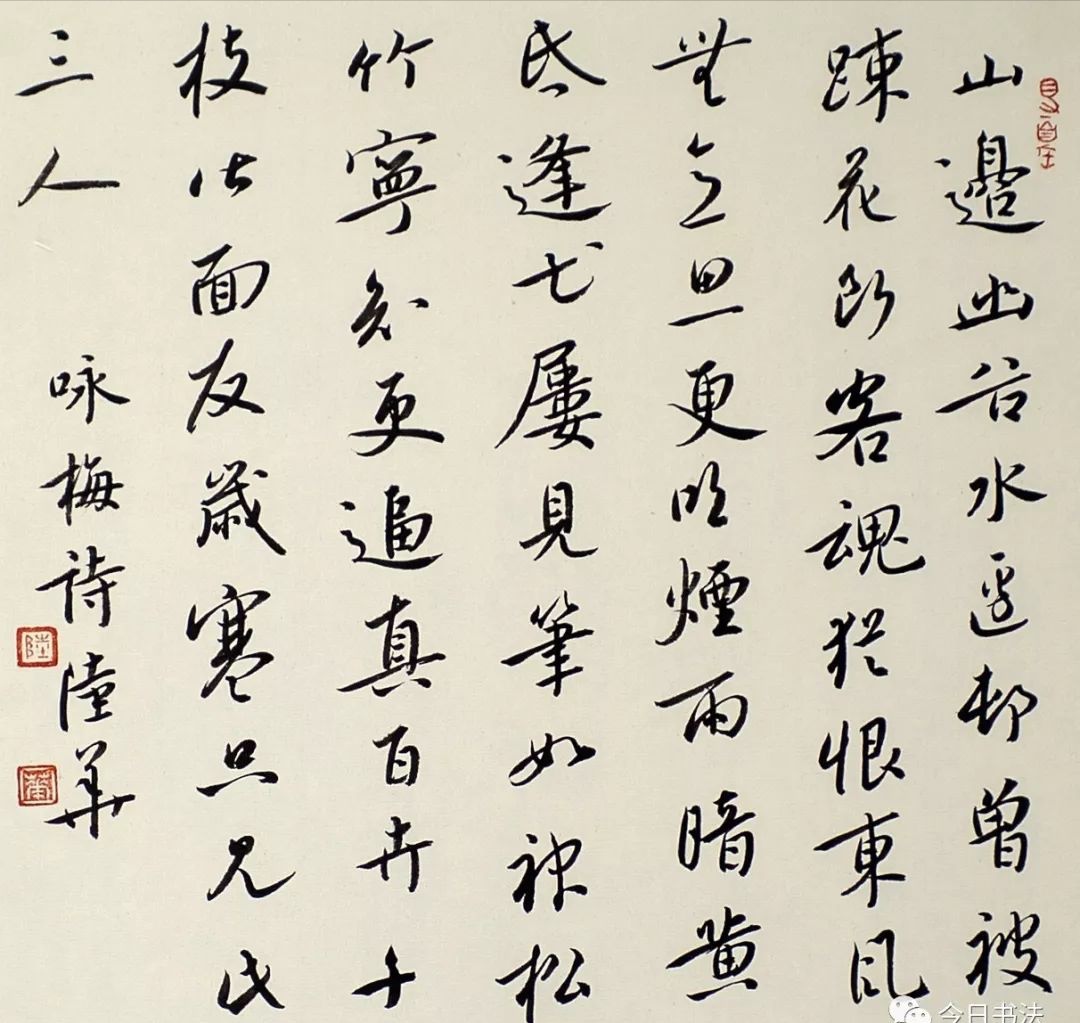 山邊幽谷水邊邨曾被
踈花斷客魂猶恨東風
無意思更吹煙雨暗黄
昏逢尤屢見筆如神松
竹寧知更逼真百卉千
枝皆面友歲寒只見此
三人
咏梅詩 陸華
陸
今日书法